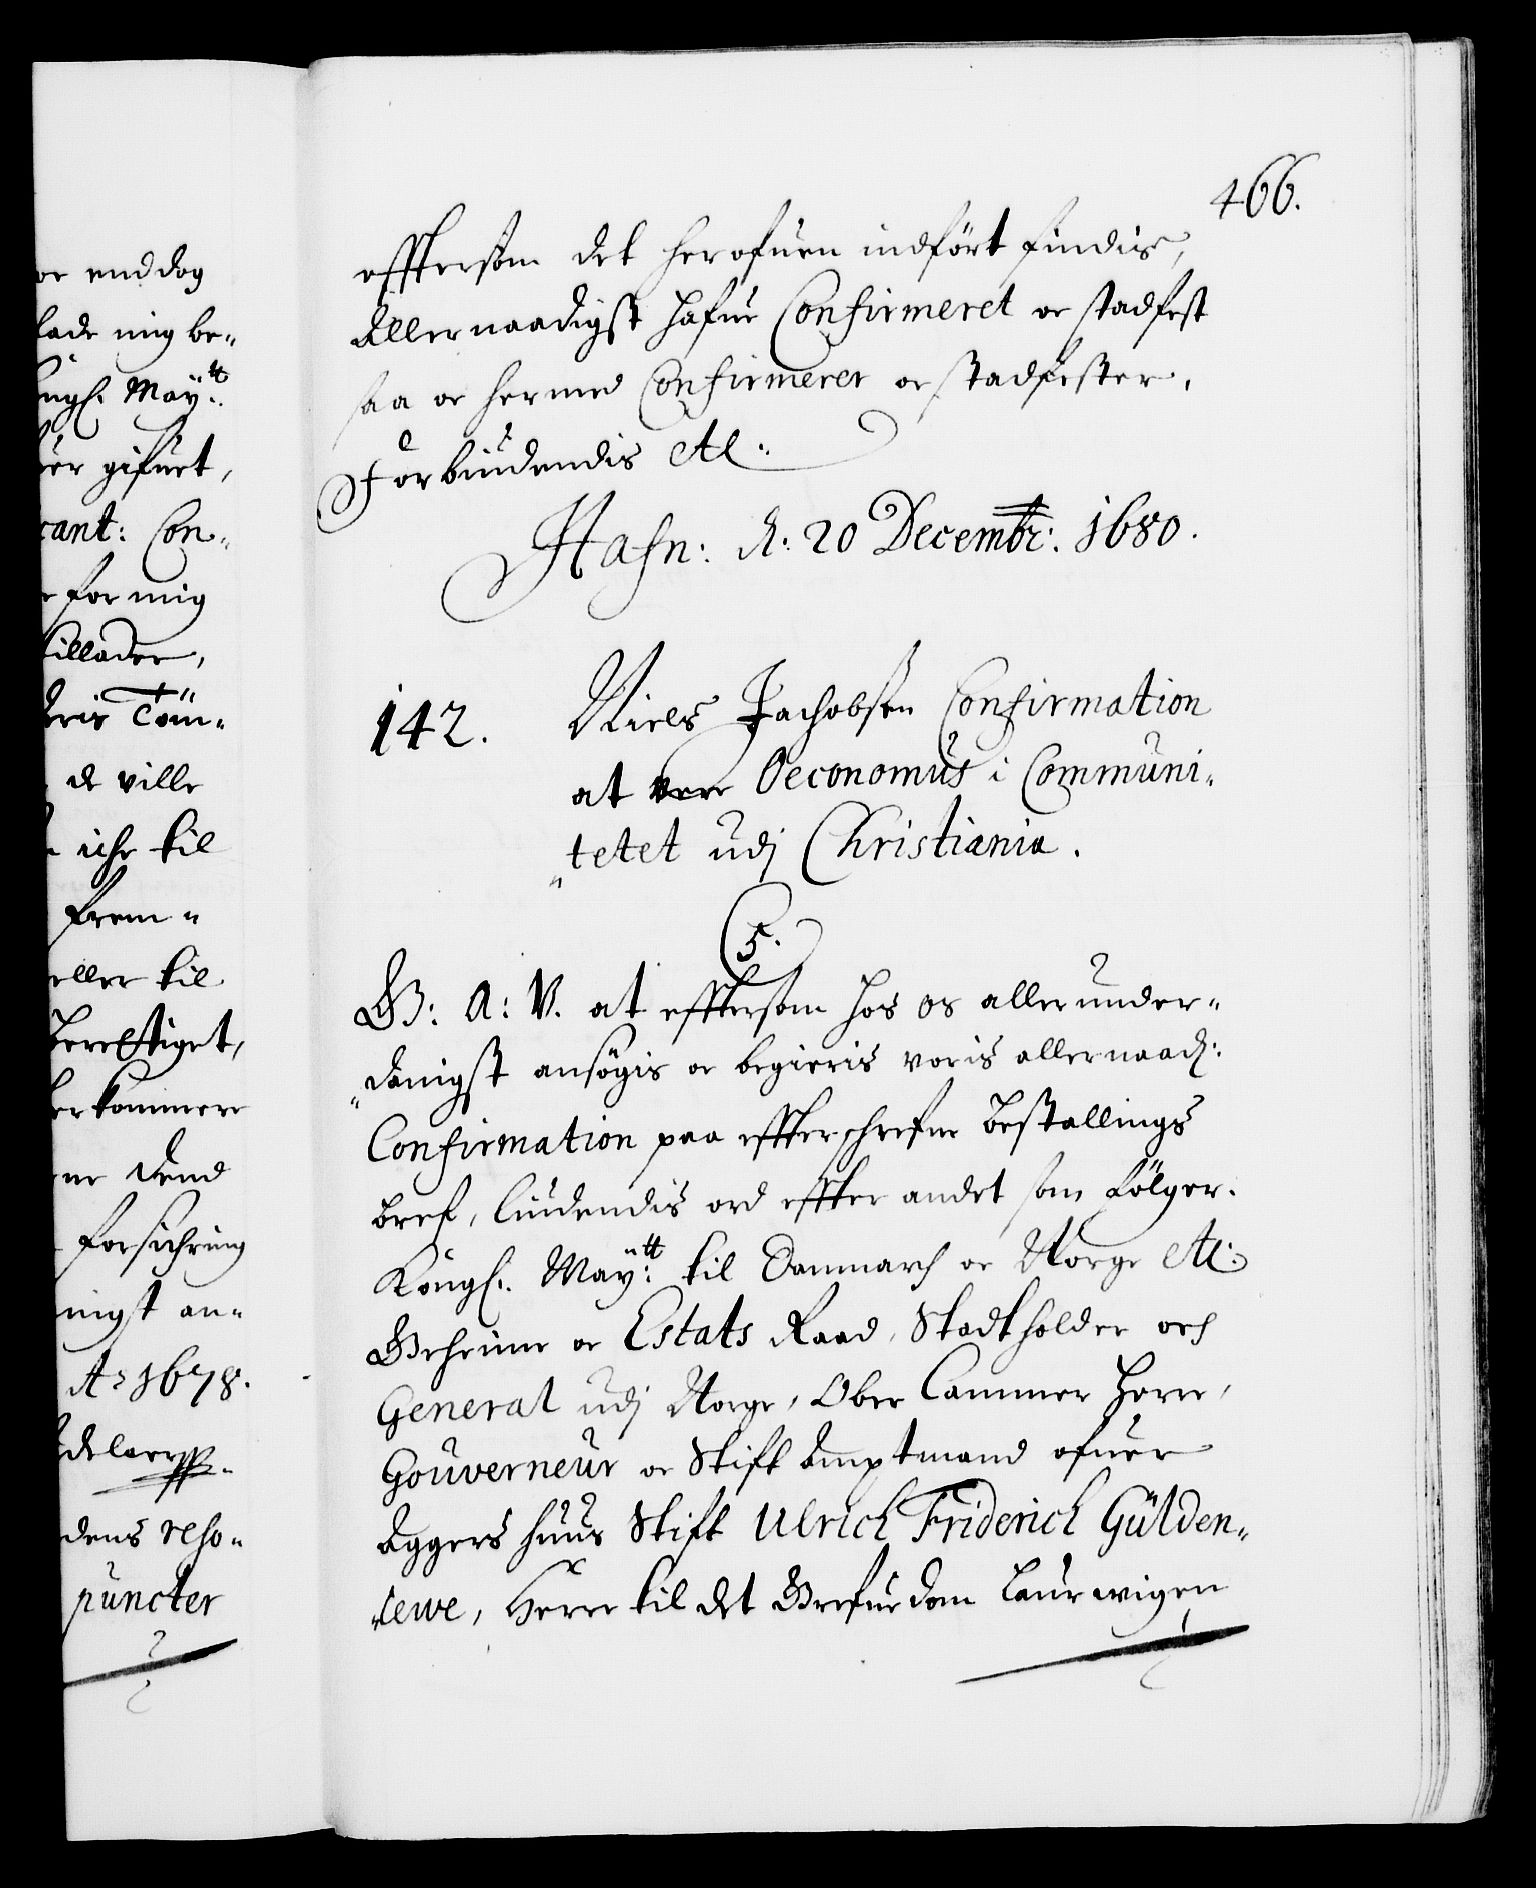 466.
efftersom det herofuen indfört findis,
Allernaadigst hafue Confirmeret oc stadfest
saa oc hermed Confirmerer oc stadfester,
Forbiudendis etc:
Hafn: d: 20 Decembr: 1680.
142.
Niels Jachobsen Confirmation
at vere Oeconomus i Communi-
tetet udj Christiania.
C 5.
G: A: V. at efftersom hos os allerunder-
danigst ansögis oc begieris voris allernaad:
Confirmation paa effterschrefne bestallings
bref, liudendis ord effter andet som fölger.
Kongl. Maytt: til Danmarch oc Norge etc:
Geheime oc Estats Raad, Stadtholder och
General udj Norge, Ober Cammer Herre,
Gouverneur oc Stift Amptmand ofuer
Aggers huus Stift Ulrich Friderich Gülden-
lewe, Herre til det Grefuedom Laurwigen
oc end dog
lade mig be-
Kongl. Maytt:
gifuet,
Con-
for mig
tillader,
Töm-
de ville
iche til
frem-
eller til
berettiget,
kommere
dend
forsichring
an-
Ao 1678.
dens reso-
puncter